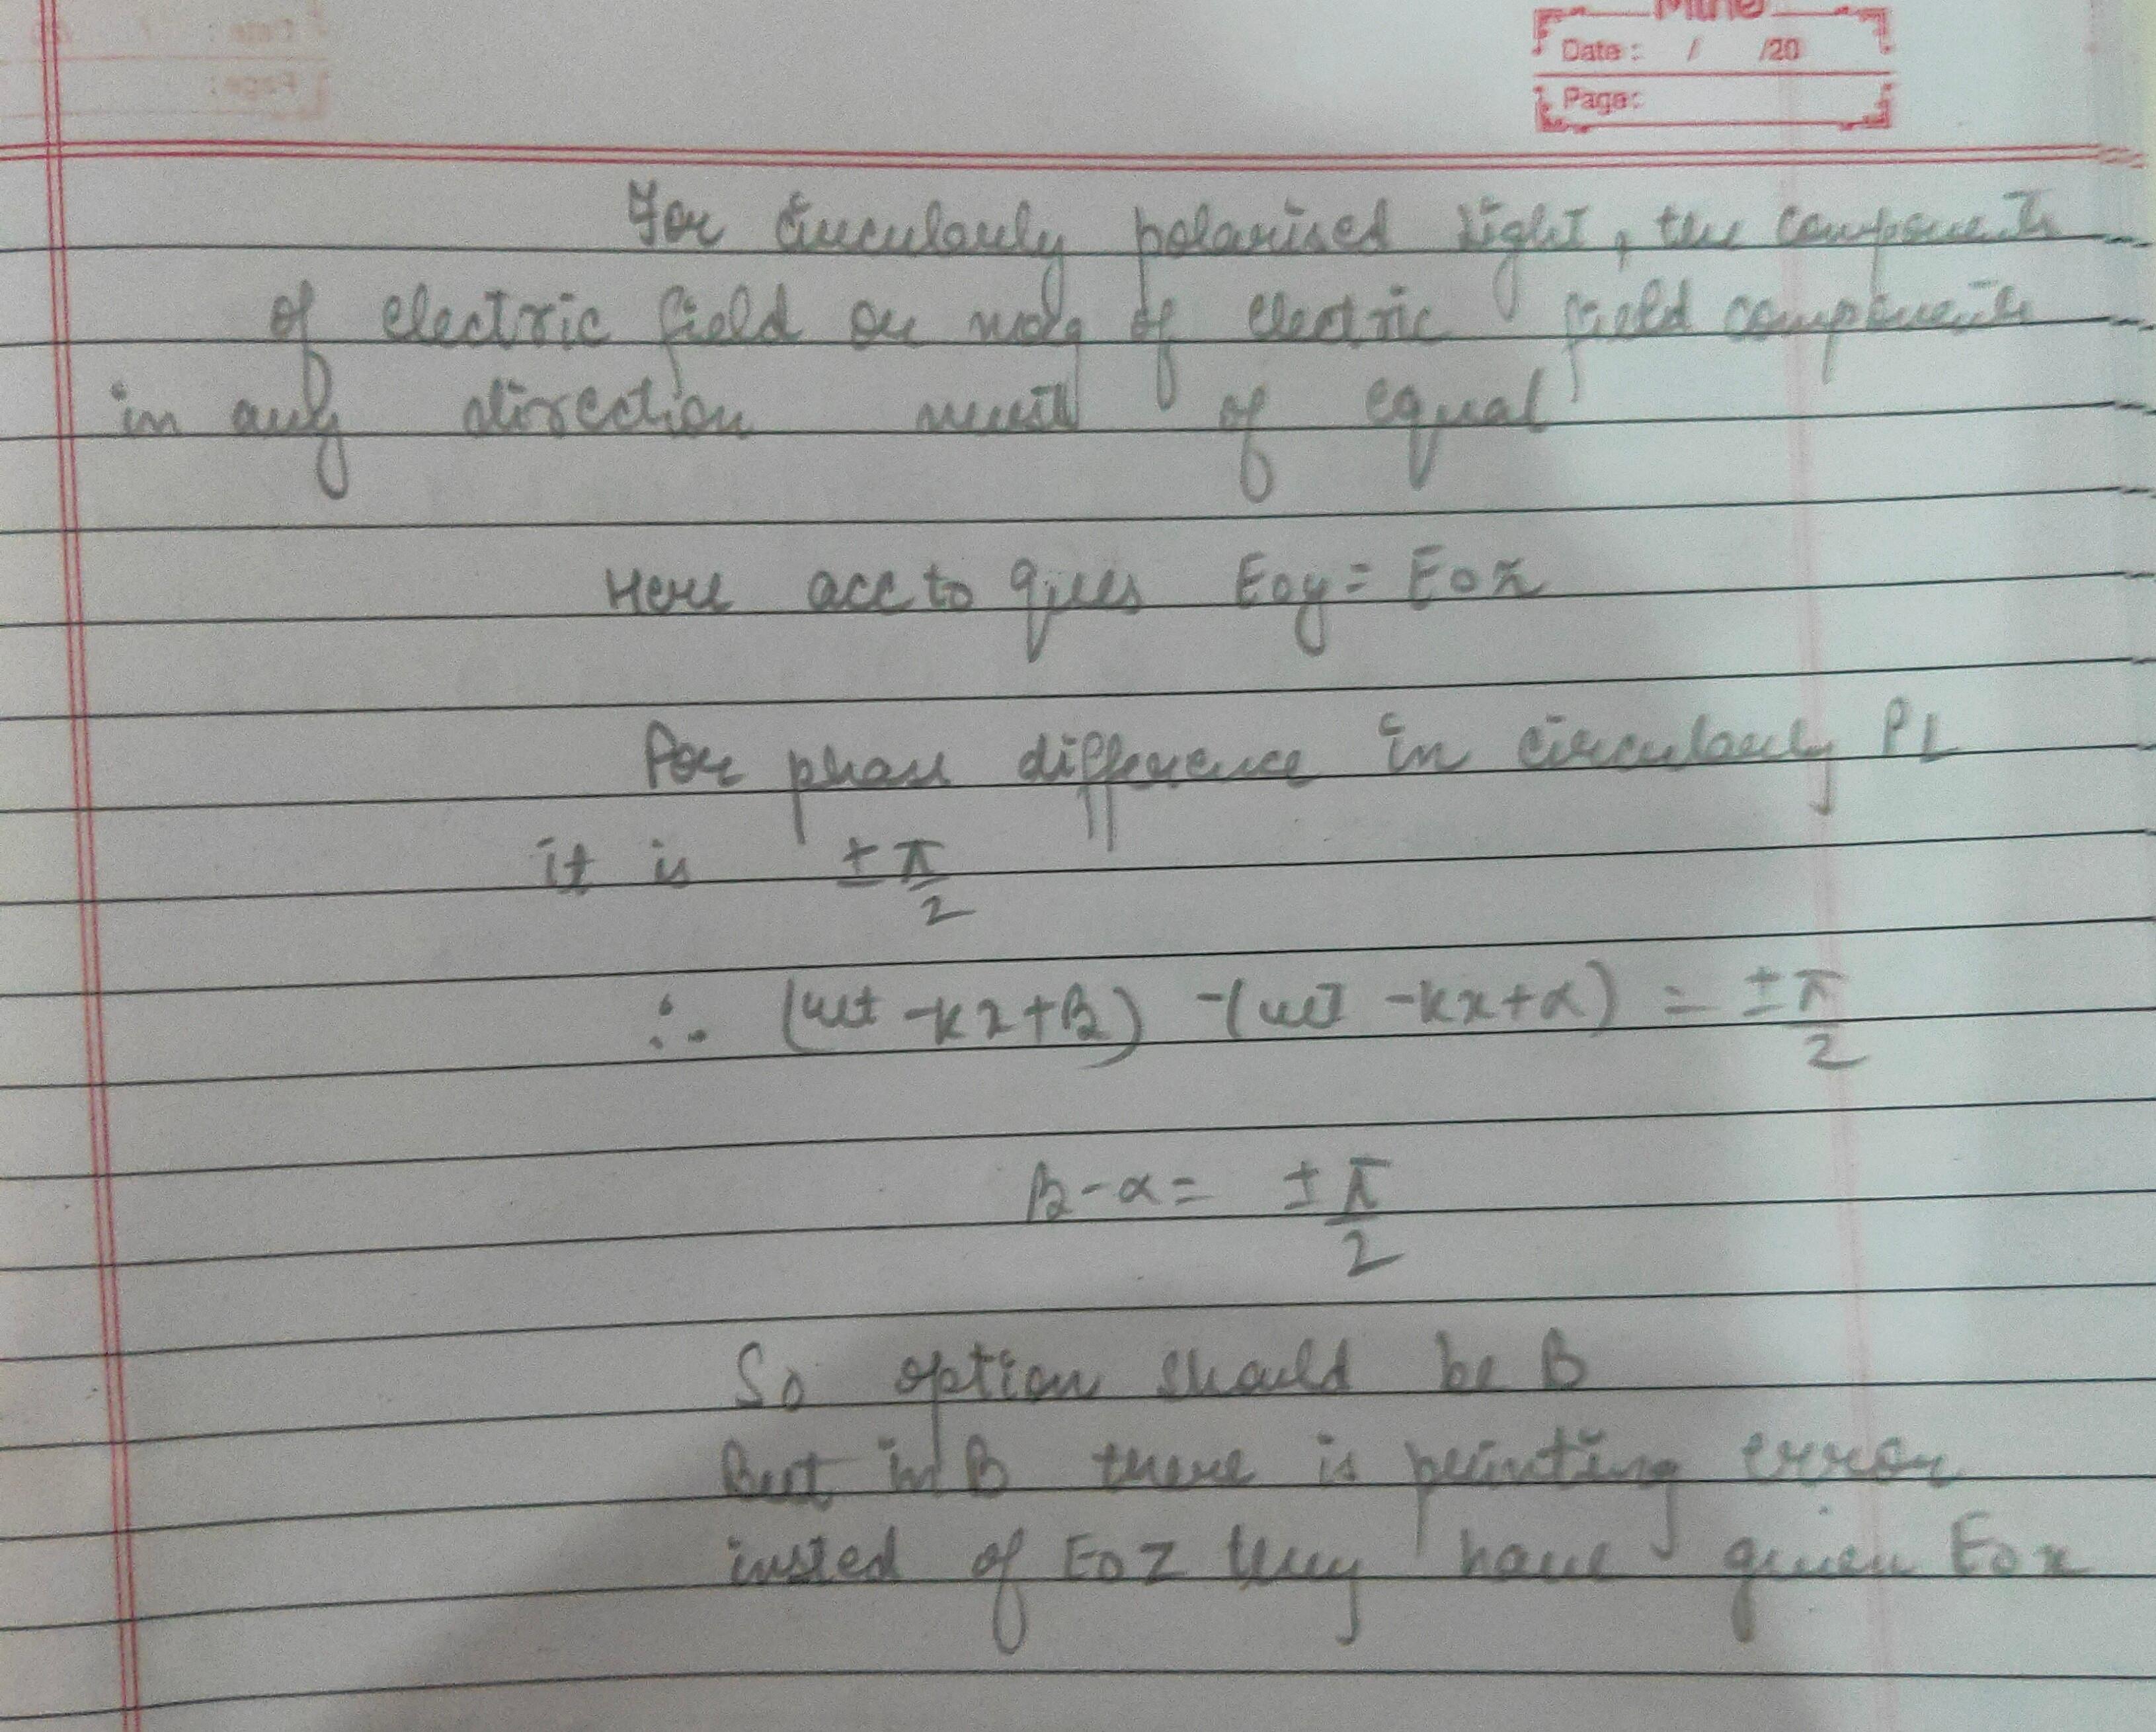 Mitho
Date : / /20
Page:
For circularly polarised light, the components
of electric field or mag of electric field components
in any direction must of equal
Here acc to ques Eoy = Eoz
For phase difference in circularly PL
it is ± π/2
∴ (wt - kx + β) - (wt - kx + α) = ± π/2
β - α = ± π/2
So option should be B
But in B there is printing error
insted of EoZ they have given Eox